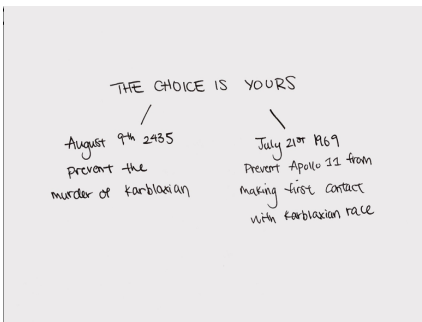 THE CHOICE IS YOURS
August 9th 2435
prevent the
murder of Karblaxian
July 21st 1969
Prevent Apollo 11 from
making first contact
with Karblaxian race